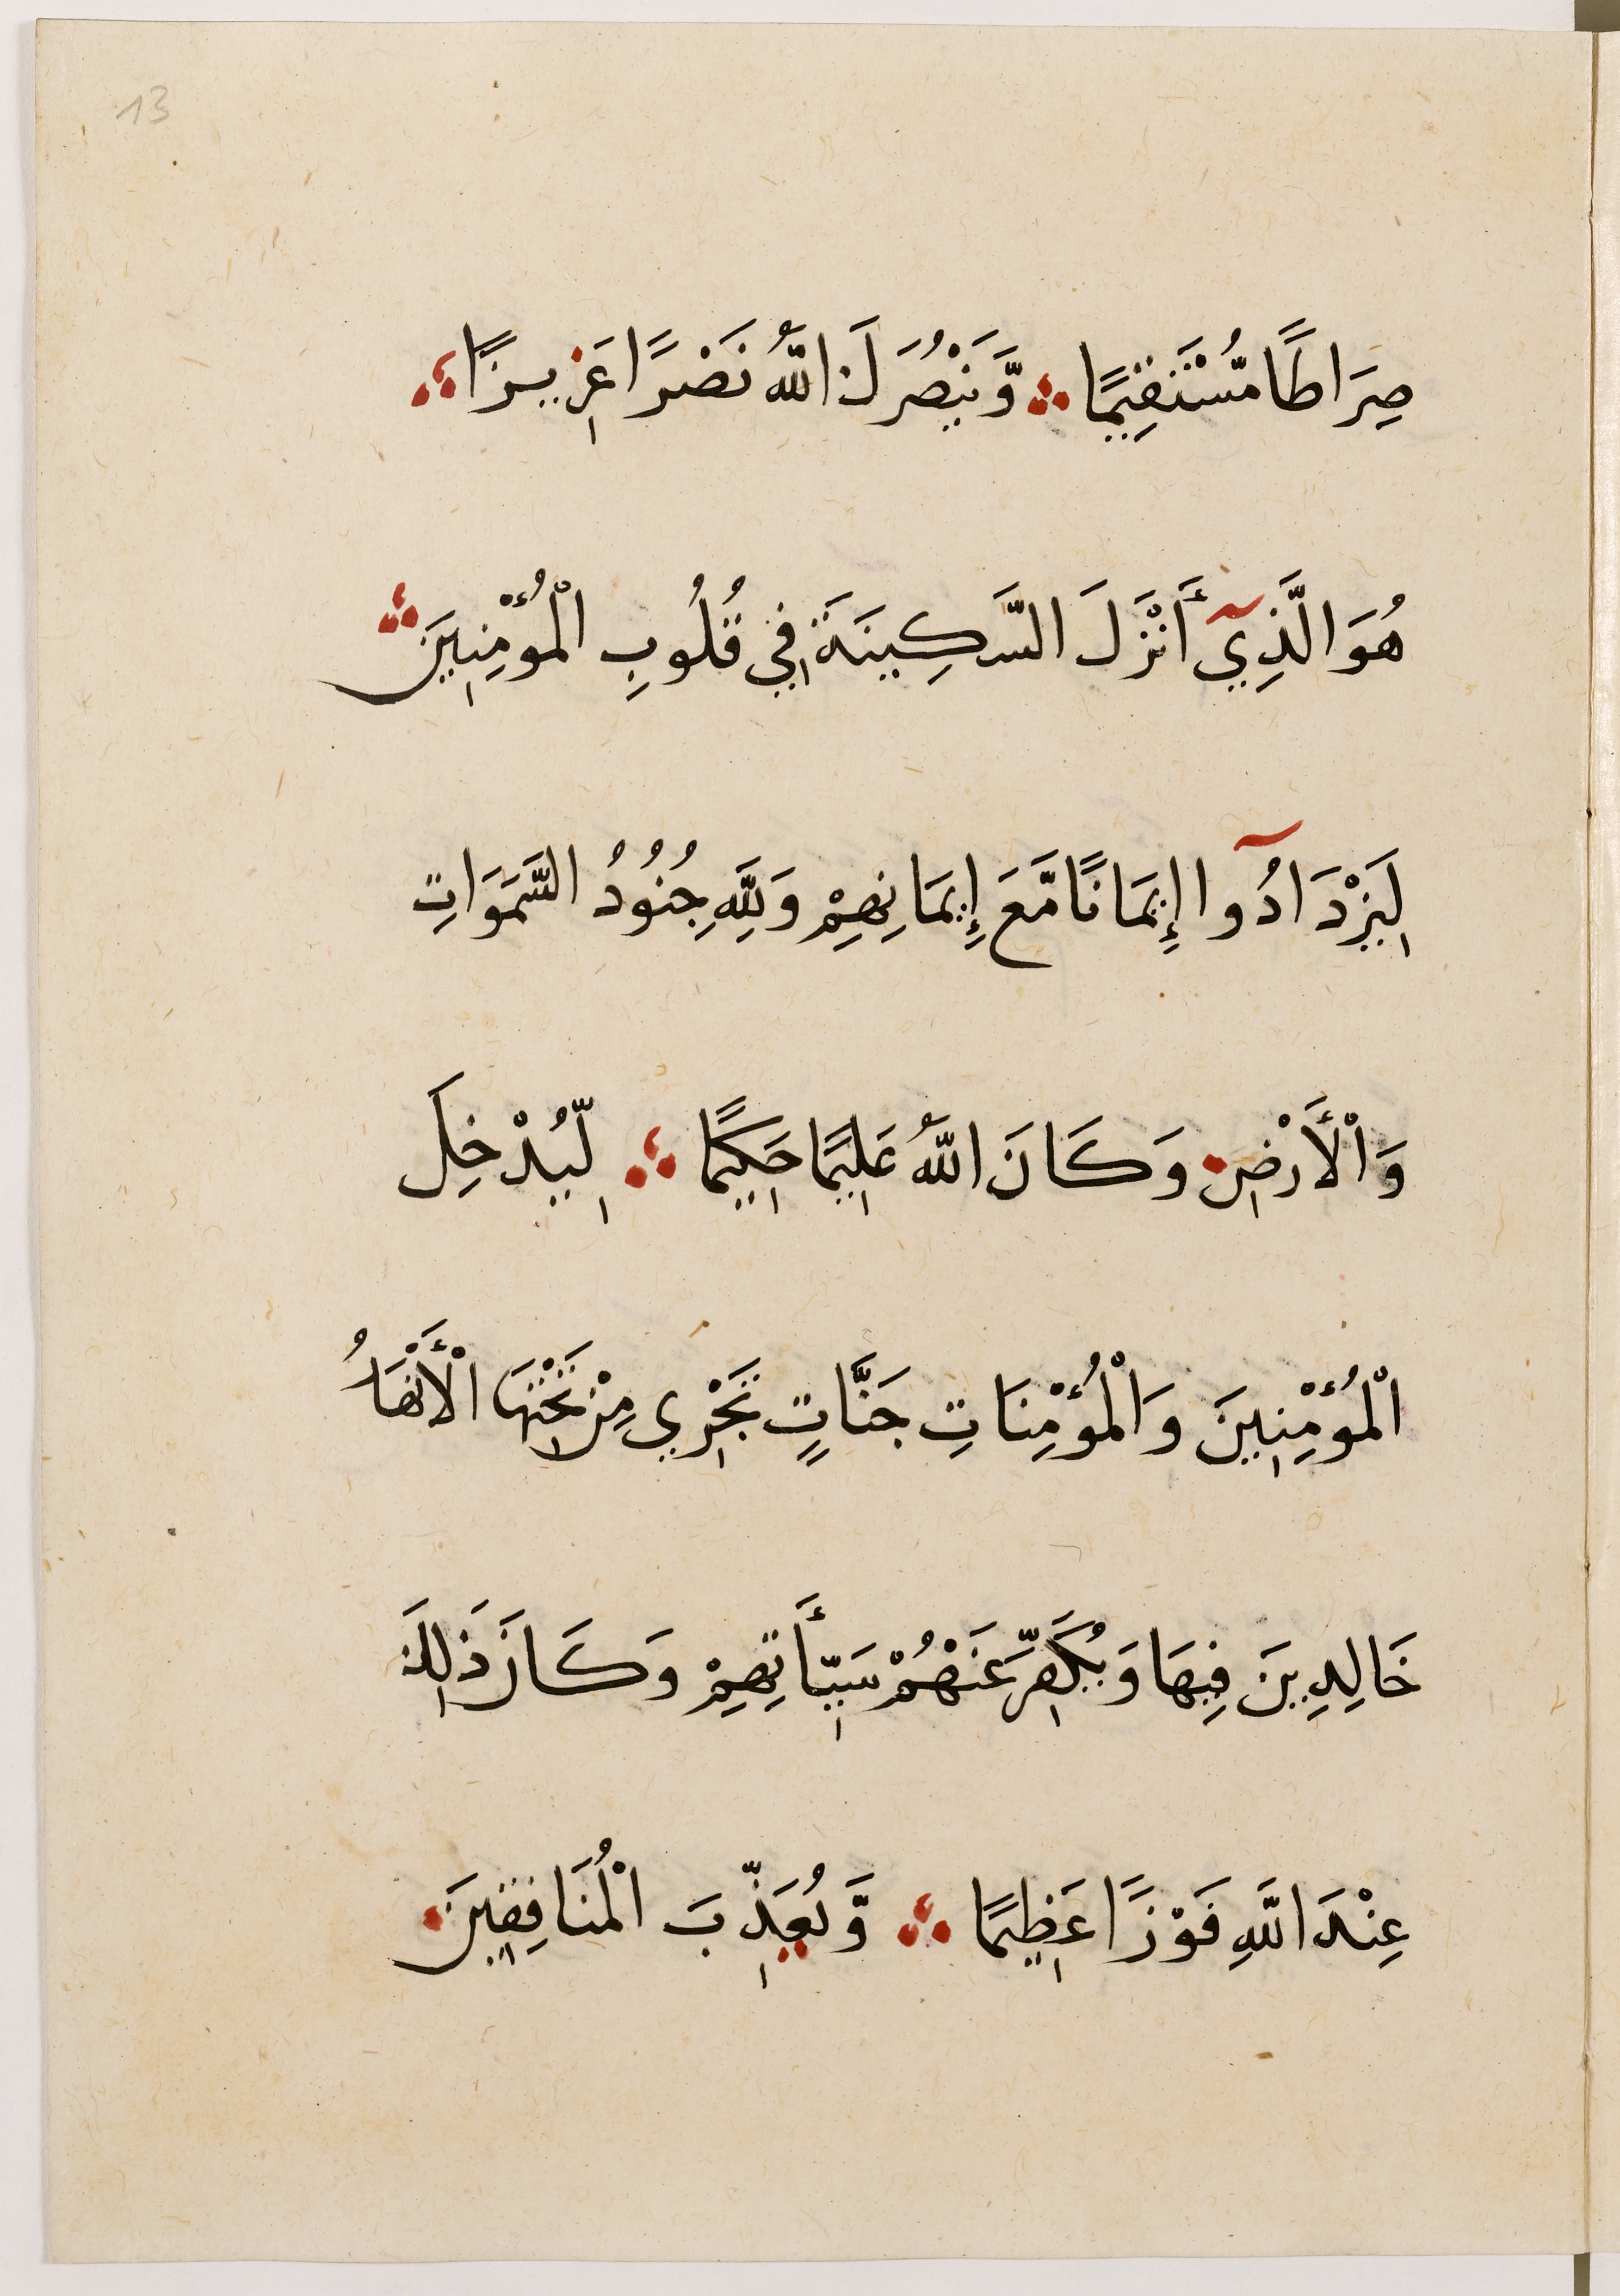 13
صِرَاطًا مُّسْتَقِيمًا وَّيَنْصُرَكَ اللَّهُ نَصْرًا عَزِيزًا
هُوَ الَّذِيٓ أَنْزَلَ السَّكِينَةَ فِي قُلُوبِ الْمُؤْمِنِينَ
لِيَزْدَادُوٓا إِيمَانًا مَّعَ إِيمَانِهِمْ وَلِلَّهِ جُنُودُ السَّمَوَاتِ
وَالْأَرْضِ وَكَانَ اللَّهُ عَلِيمًا حَكِيمًا لِّيُدْخِلَ
الْمُؤْمِنِينَ وَالْمُؤْمِنَاتِ جَنَّاتٍ تَجْرِي مِنْ تَحْتِهَا الْأَنْهَارُ
خَالِدِينَ فِيهَا وَيُكَفِّرَ عَنْهُمْ سَيِّأَتِهِمْ وَكَانَ ذَلِكَ
عِنْدَ اللَّهِ فَوْزًا عَظِيمًا وَّيُعَذِّبَ الْمُنَافِقِينَ